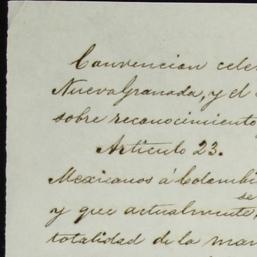 Convencion cele
Nueva Granada, y el
sobre reconocimiento
Articulo 23.
Mexicanos á Colombi
se
y que actualmente,
totalidad de la mar